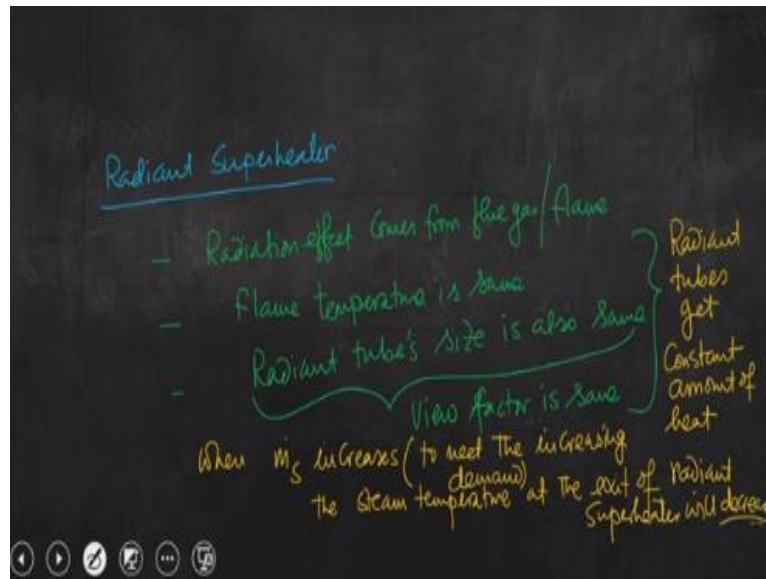 Radiant Superheater
— Radiation effect comes from flue gas/flame
— Flame temperature is same
- Radiant tube's size is also same
View factor is same
Radiant
tubes
get
Constant
amount of
heat
When ṁs increases (to meet the increasing
demand)
the steam temperature at the exit of radiant
Superheater will decrease